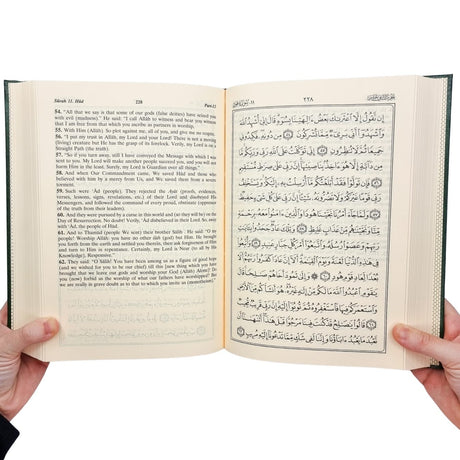 Sûrah 11. Hûd 228 Part-12
54. "All that we say is that some of our gods (false deities) have seized you
with evil (madness)." He said: "I call Allâh to witness and bear you witness
that I am free from that which you ascribe as partners in worship,
55. With Him (Allâh). So plot against me, all of you, and give me no respite.
56. "I put my trust in Allâh, my Lord and your Lord! There is not a moving
(living) creature but He has the grasp of its forelock. Verily, my Lord is on a
Straight Path (the truth).
57. "So if you turn away, still I have conveyed the Message with which I was
sent to you. My Lord will make another people succeed you, and you will not
harm Him in the least. Surely, my Lord is Guardian over all things."
58. And when Our Commandment came, We saved Hûd and those who
believed with him by a mercy from Us, and We saved them from a severe
torment.
59. Such were 'Âd (people). They rejected the Ayât (proofs, evidence,
verses, lessons, signs, revelations, etc.) of their Lord and disobeyed His
Messengers, and followed the command of every proud, obstinate (oppressor
of the truth from their leaders).
60. And they were pursued by a curse in this world and (so they will be) on the
Day of Resurrection. No doubt! Verily, 'Âd disbelieved in their Lord. So away
with 'Âd, the people of Hûd.
61. And to Thamûd (people We sent) their brother Sâlih. He said: "O my
people! Worship Allâh: you have no other ilâh (god) but Him. He brought
you forth from the earth and settled you therein, then ask forgiveness of Him
and turn to Him in repentance. Certainly, my Lord is Near (to all by His
Knowledge), Responsive."
62. They said: "O Sâlih! You have been among us as a figure of good hope
(and we wished for you to be our chief) till this [new thing which you have
brought that we leave our gods and worship your God (Allâh) Alone]! Do
you (now) forbid us the worship of what our fathers have worshipped? But
we are really in grave doubt as to that to which you invite us (monotheism)."
٢٢٨
إِن نَّقُولُ إِلَّا ٱعْتَرَىٰكَ بَعْضُ ءَالِهَتِنَا بِسُوٓءٍ ۗ قَالَ إِنِّىٓ أُشْهِدُ ٱللَّهَ
وَٱشْهَدُوٓا۟ أَنِّى بَرِىٓءٌ مِّمَّا تُشْرِكُونَ ٥٤ مِن دُونِهِۦ ۖ فَكِيدُونِى
جَمِيعًا ثُمَّ لَا تُنظِرُونِ ٥٥ إِنِّى تَوَكَّلْتُ عَلَى ٱللَّهِ رَبِّى وَرَبِّكُم ۚ
مَّا مِن دَآبَّةٍ إِلَّا هُوَ ءَاخِذٌۢ بِنَاصِيَتِهَآ ۚ إِنَّ رَبِّى عَلَىٰ صِرَٰطٍ
مُّسْتَقِيمٍ ٥٦ فَإِن تَوَلَّوْا۟ فَقَدْ أَبْلَغْتُكُم مَّآ أُرْسِلْتُ بِهِۦٓ إِلَيْكُمْ ۚ
وَيَسْتَخْلِفُ رَبِّى قَوْمًا غَيْرَكُمْ وَلَا تَضُرُّونَهُۥ شَيْـًٔا ۚ إِنَّ رَبِّى عَلَىٰ
كُلِّ شَىْءٍ حَفِيظٌ ٥٧ وَلَمَّا جَآءَ أَمْرُنَا نَجَّيْنَا هُودًا وَٱلَّذِينَ ءَامَنُوا۟
مَعَهُۥ بِرَحْمَةٍ مِّنَّا وَنَجَّيْنَٰهُم مِّنْ عَذَابٍ غَلِيظٍ ٥٨ وَتِلْكَ عَادٌ ۖ
جَحَدُوا۟ بِـَٔايَٰتِ رَبِّهِمْ وَعَصَوْا۟ رُسُلَهُۥ وَٱتَّبَعُوٓا۟ أَمْرَ كُلِّ جَبَّارٍ
عَنِيدٍ ٥٩ وَأُتْبِعُوا۟ فِى هَٰذِهِ ٱلدُّنْيَا لَعْنَةً وَيَوْمَ ٱلْقِيَٰمَةِ ۗ أَلَآ إِنَّ
عَادًا كَفَرُوا۟ رَبَّهُمْ ۗ أَلَا بُعْدًا لِّعَادٍ قَوْمِ هُودٍ ٦٠ ۞ وَإِلَىٰ ثَمُودَ
أَخَاهُمْ صَٰلِحًا ۚ قَالَ يَٰقَوْمِ ٱعْبُدُوا۟ ٱللَّهَ مَا لَكُم مِّنْ إِلَٰهٍ غَيْرُهُۥ ۖ
هُوَ أَنشَأَكُم مِّنَ ٱلْأَرْضِ وَٱسْتَعْمَرَكُمْ فِيهَا فَٱسْتَغْفِرُوهُ ثُمَّ تُوبُوٓا۟
إِلَيْهِ ۚ إِنَّ رَبِّى قَرِيبٌ مُّجِيبٌ ٦١ قَالُوا۟ يَٰصَٰلِحُ قَدْ كُنتَ فِينَا مَرْجُوًّا قَبْلَ هَٰذَآ ۖ أَتَنْهَىٰنَآ أَن
نَّعْبُدَ مَا يَعْبُدُ ءَابَآؤُنَا وَإِنَّنَا لَفِى شَكٍّ مِّمَّا تَدْعُونَآ إِلَيْهِ مُرِيبٍ ٦٢